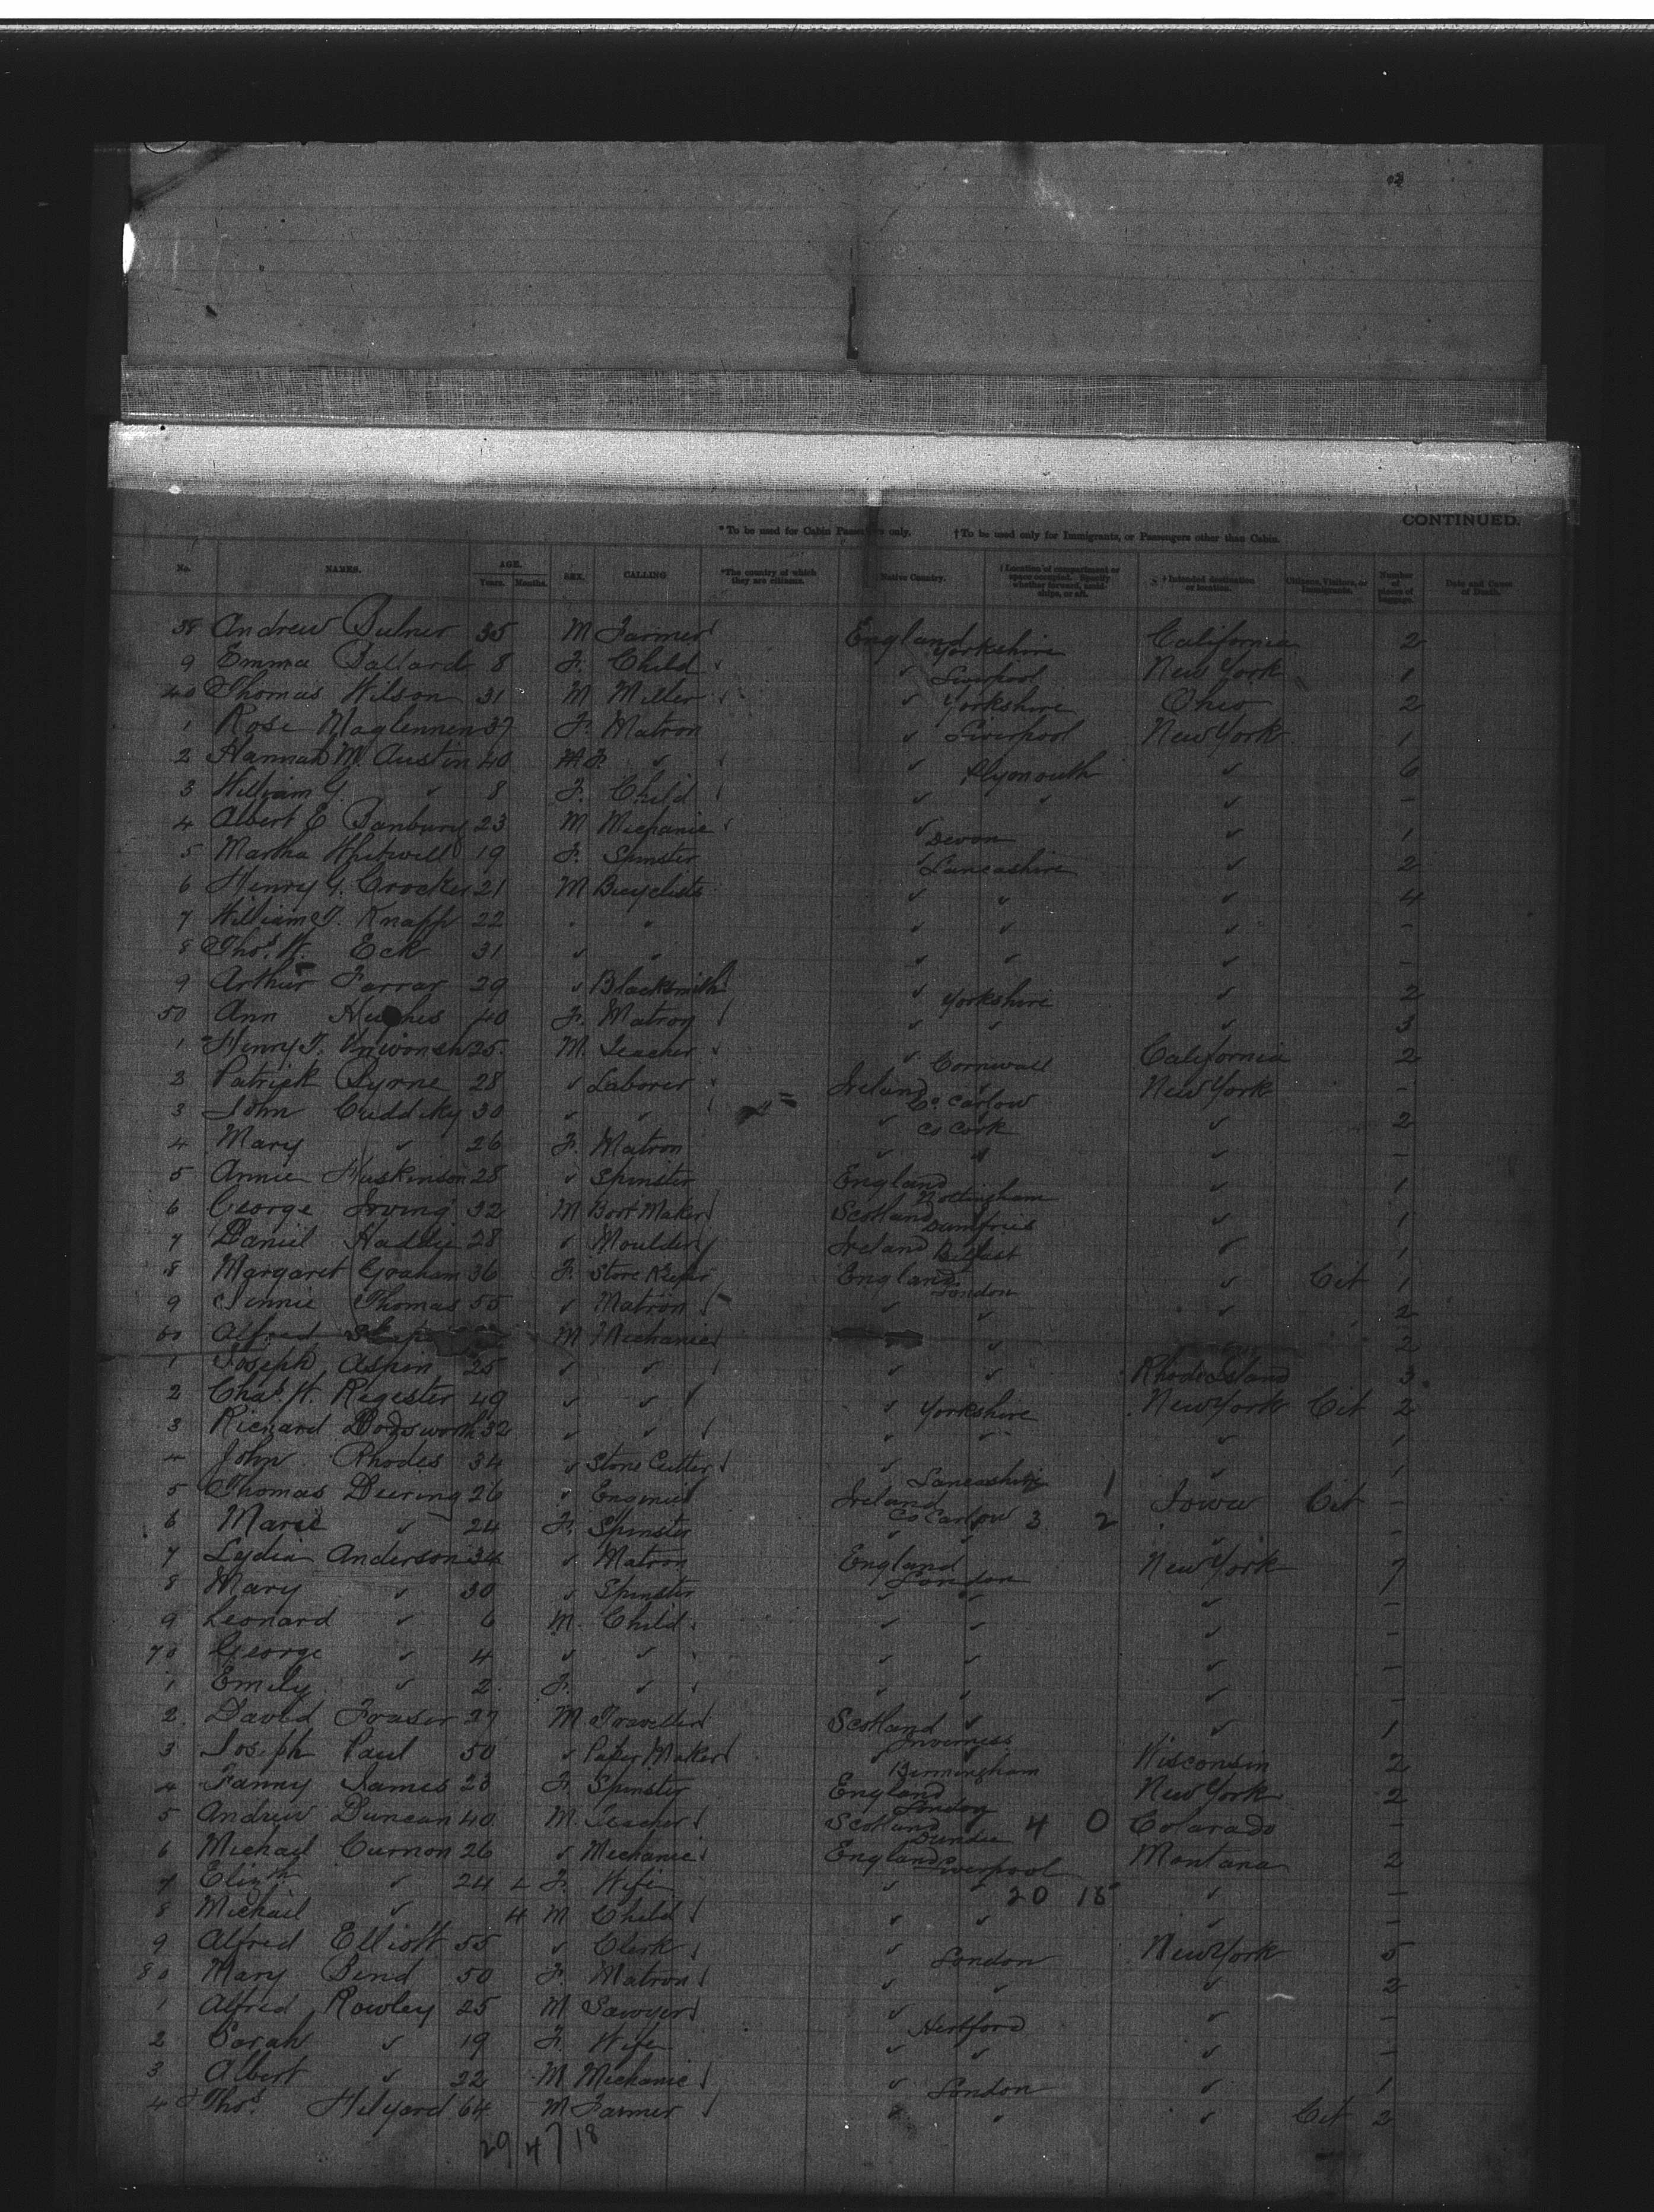 CONTINUED.
* To be used for Cabin Passengers only. † To be used only for Immigrants, or Passengers other than Cabin.
No. NAMES. AGE. Years. Months. SEX. CALLING *The country of which they are citizens. Native Country. † Location of compartment or space occupied. Specify whether forward, amidships, or aft. † Intended destination or location. Citizens, Visitors, or Immigrants. Number of pieces of baggage. Date and Cause of Death.
38 Andrew Bulner 35 M Farmer England Yorkshire California 2
9 Emma Ballard 8 F. Child ✓ Liverpool New York 1
40 Thomas Wilson 31 M Miller ✓ Yorkshire Ohio 2
1 Rose Maglennen 37 F. Matron ✓ Liverpool New York 1
2 Hannah M. Austin 40 F. ✓ ✓ Plymouth ✓ 6
3 William G. ✓ 8 F. Child ✓ ✓ ✓ –
4 Albert E Banbury 23 M Mechanic ✓ Devon ✓ 1
5 Martha Whitwell 19 F. Spinster ✓ Lancashire ✓ 2
6 Henry G. Crocker 21 M Bicyclists ✓ ✓ ✓ 4
7 William J. Knapp 22 " " ✓ ✓ ✓ –
8 Thos. W. Eck 31 ✓ ✓ ✓ ✓ ✓ –
9 Arthur Farrar 29 ✓ Blacksmith ✓ Yorkshire ✓ 2
50 Ann Hughes 40 F. Matron ✓ ✓ ✓ 3
1 Henry T. 25 M. Teacher ✓ Cornwall California 2
2 Patrick Byrne 28 ✓ Laborer Ireland Co. Carlow New York –
3 John Cuddihy 30 ✓ ✓ ✓ Co Cork ✓ 2
4 Mary ✓ 26 F. Matron ✓ ✓ ✓ –
5 Annie Huskinson 28 ✓ Spinster England Nottingham ✓ 1
6 George Irving 32 M Boot Maker Scotland Dumfries ✓ 1
7 Daniel Haddie 28 ✓ Moulder Ireland Belfast ✓ 1
8 Margaret Graham 36 F. Store Keeper England London ✓ Cit 1
9 Jennie Thomas 55 ✓ Matron ✓ ✓ ✓ 2
60 Alfred M Mechanic ✓ 2
1 Joseph Aspin 25 ✓ ✓ ✓ ✓ Rhode Island 3
2 Chas. H. Register 49 ✓ ✓ ✓ Yorkshire New York Cit 2
3 Richard Bodsworth 32 ✓ ✓ ✓ ✓ ✓ 1
4 John Rhodes 34 ✓ Stone Cutter ✓ Lancashire 1 ✓ 1
5 Thomas Deering 26 ✓ Engineer Ireland Co Carlow 3 2 Iowa Cit –
6 Marie ✓ 24 F. Spinster ✓ ✓ ✓ –
7 Lydia Anderson 34 ✓ Matron England London New York 7
8 Mary ✓ 30 ✓ Spinster ✓ ✓ ✓ –
9 Leonard ✓ 6 M. Child ✓ ✓ ✓ –
70 George ✓ 4 ✓ ✓ ✓ ✓ ✓ –
1 Emily ✓ 2 F. ✓ ✓ ✓ ✓ –
2 David Fraser 27 M Traveller Scotland Inverness ✓ 1
3 Joseph Paul 50 ✓ Paper Maker ✓ Birmingham Wisconsin 2
4 Fanny James 23 F. Spinster England London New York 2
5 Andrew Duncan 40 M. Teacher Scotland Dundee 4 0 Colarado –
6 Michael Curnon 26 ✓ Mechanic England Liverpool Montana 2
7 Elizth ✓ 24 F. Wife ✓ ✓ 20 18 ✓ –
8 Michael ✓ 4 M Child ✓ ✓ ✓ –
9 Alfred Elliott 55 ✓ Clerk ✓ London New York 5
80 Mary Bend 50 F. Matron ✓ ✓ ✓ 2
1 Alfred Rowley 25 M Sawyer ✓ Hertford ✓ –
2 Sarah ✓ 19 F. Wife ✓ ✓ ✓ –
3 Albert ✓ 22 M Mechanic ✓ London ✓ 1
4 Thos. Hilyard 64 M Farmer ✓ ✓ ✓ Cit 2
29 47 18